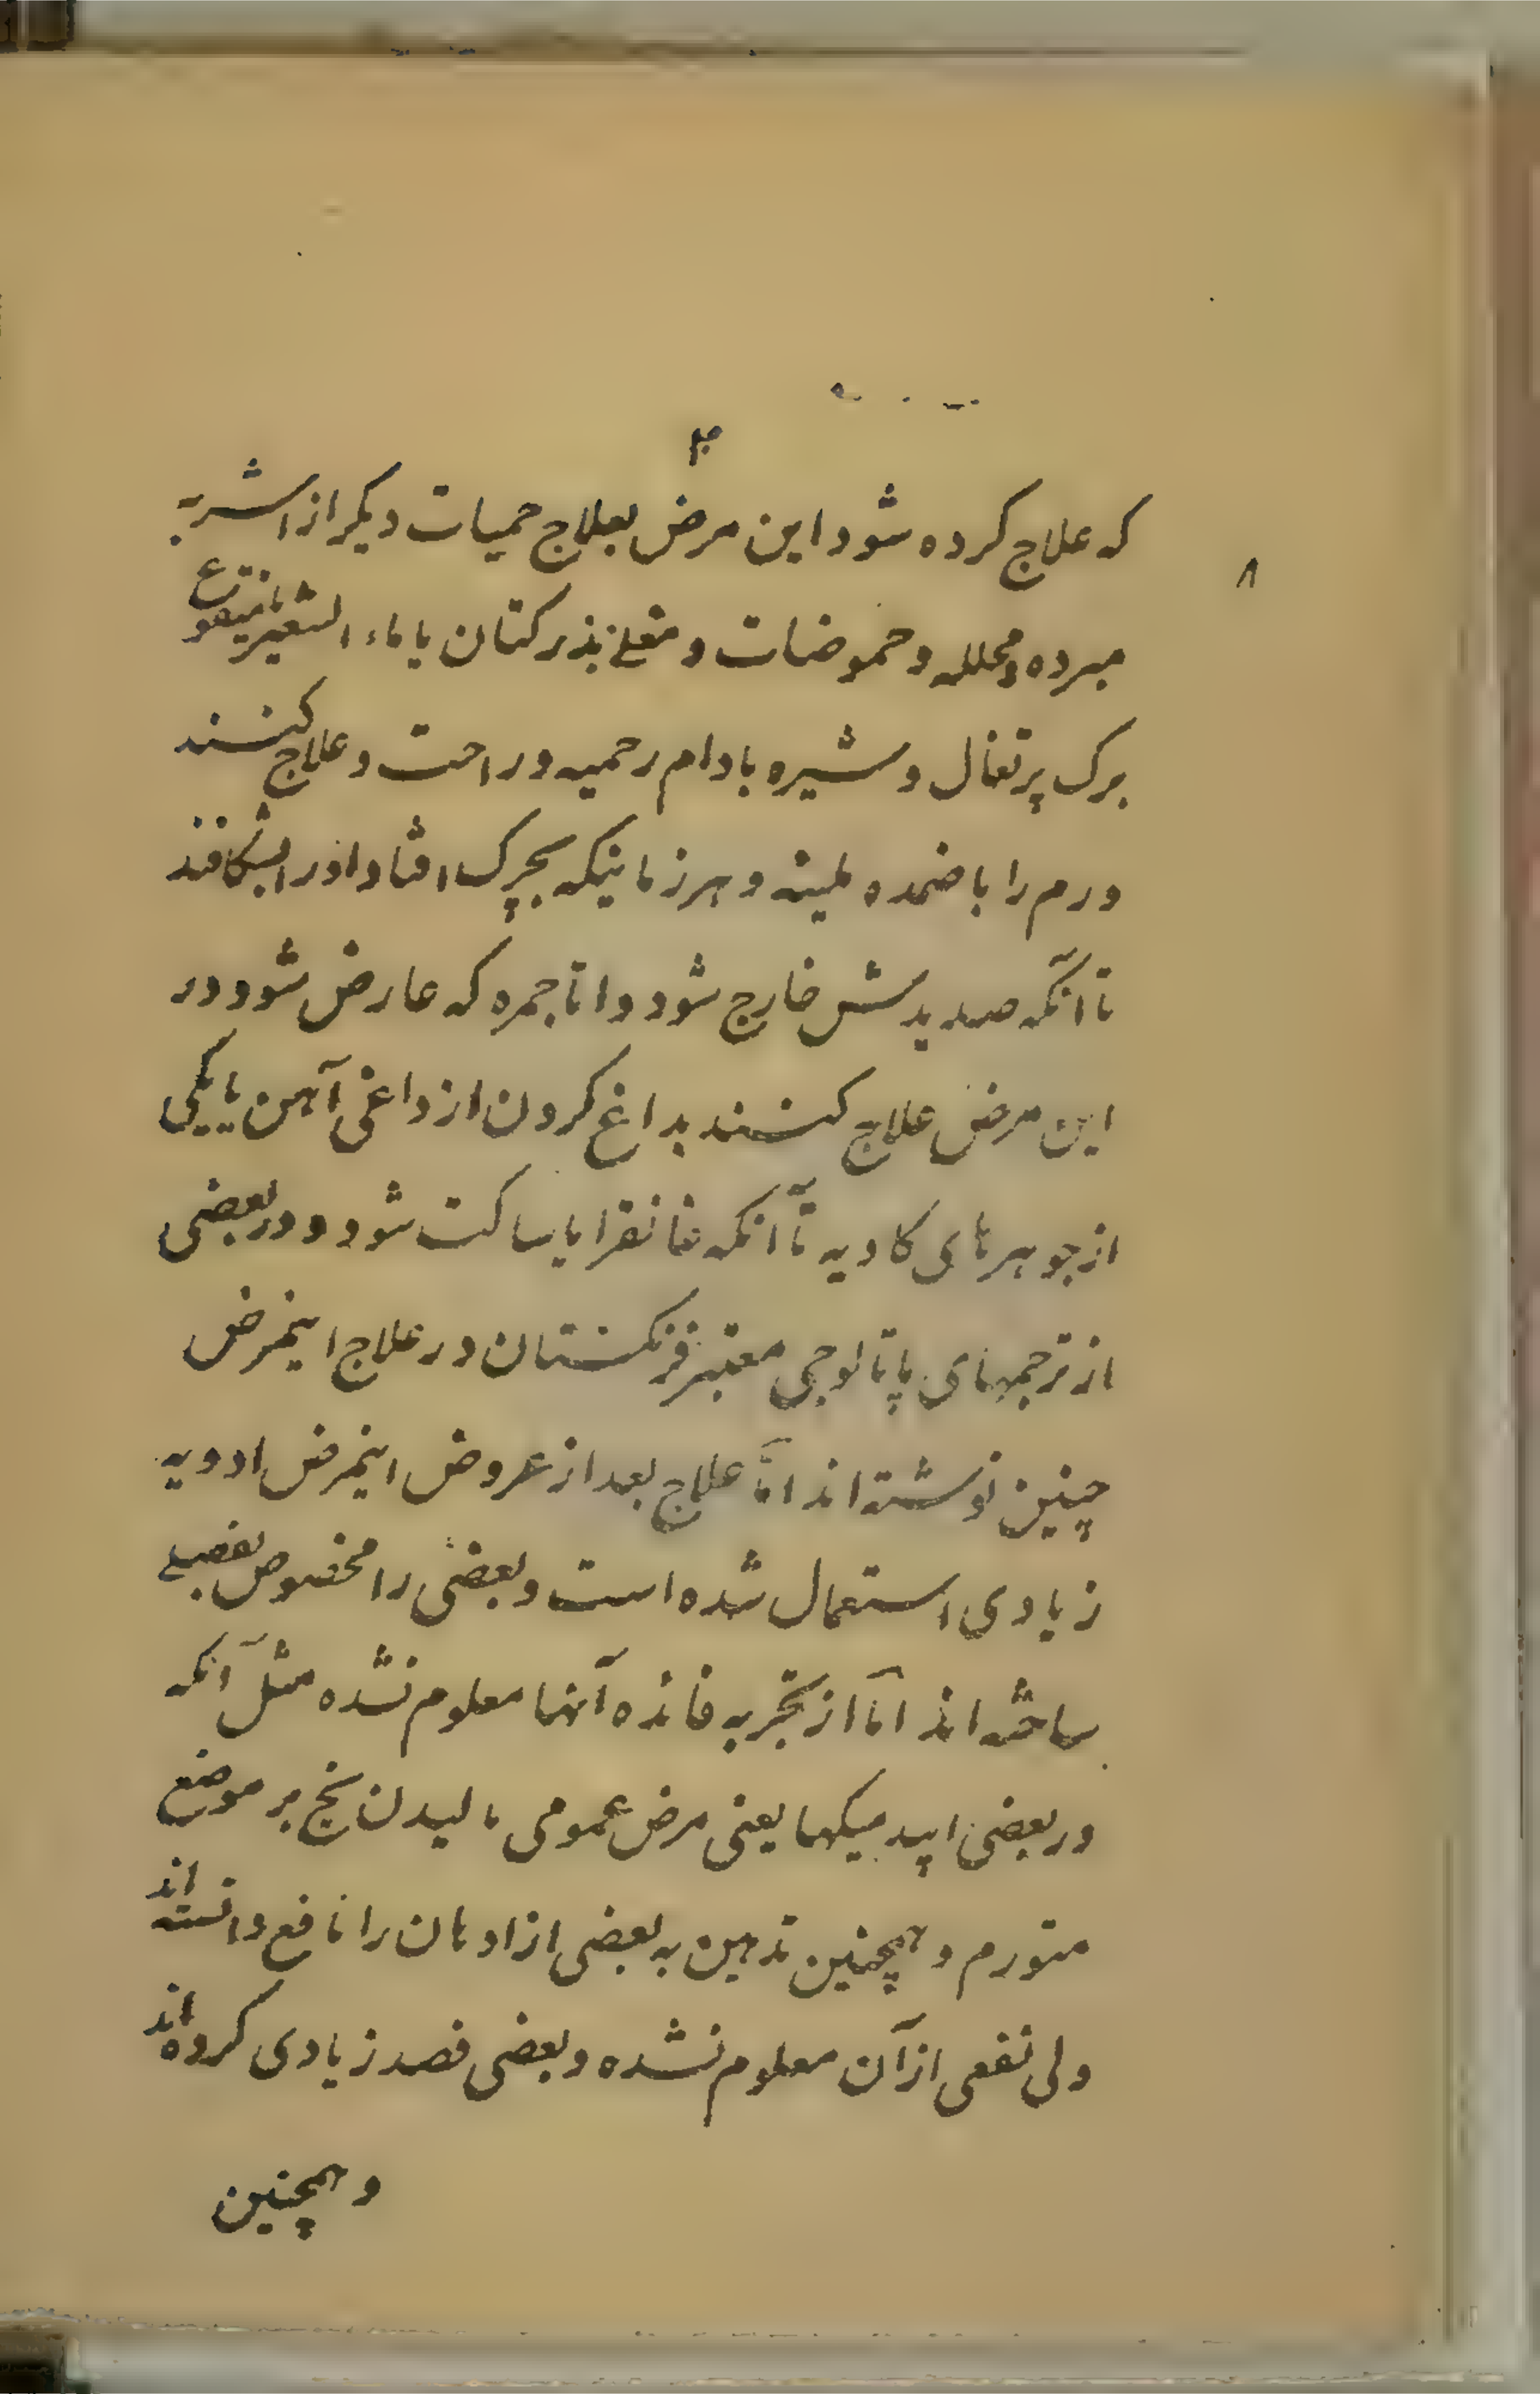 ۸
که علاج کرده شود این مرض بعلاج حمیات دیکر از اشربه
مبرده و محلله و حموضات و مغلی بذر کتان یا ماء الشعیر یا منقوع
برک پرتغال و شیره بادام رحمیه و راحت و علاج کنند
ورم را با ضمده ملینه و هر زمانیکه بچرک افتاد اورا بشکافند
تا آنکه صدیدش خارج شود و اما جمره که عارض شود در
این مرض علاج کنند بداغ کردن از داغی آهن یا یکی
از جوهرهای کاویه تا آنکه غانقرایا ساکت شود و در بعضی
از ترجمهای پاتالوجی معتبر فرنکستان در علاج اینمرض
چنین نوشته اند اما علاج بعد از عروض اینمرض ادویه
زیادی استعمال شده است و بعضی را مخصوص بفصلی
ساخته اند اما از تجربه فائده آنها معلوم نشده مثل آنکه
در بعضی اپیدمیکها یعنی مرض عمومی مالیدن یخ بر موضع
متورم و همچنین تدهین به بعضی از ادهان را نافع دانسته اند
ولی نفعی از آن معلوم نشده و بعضی فصد زیادی کرده اند
و همچنین